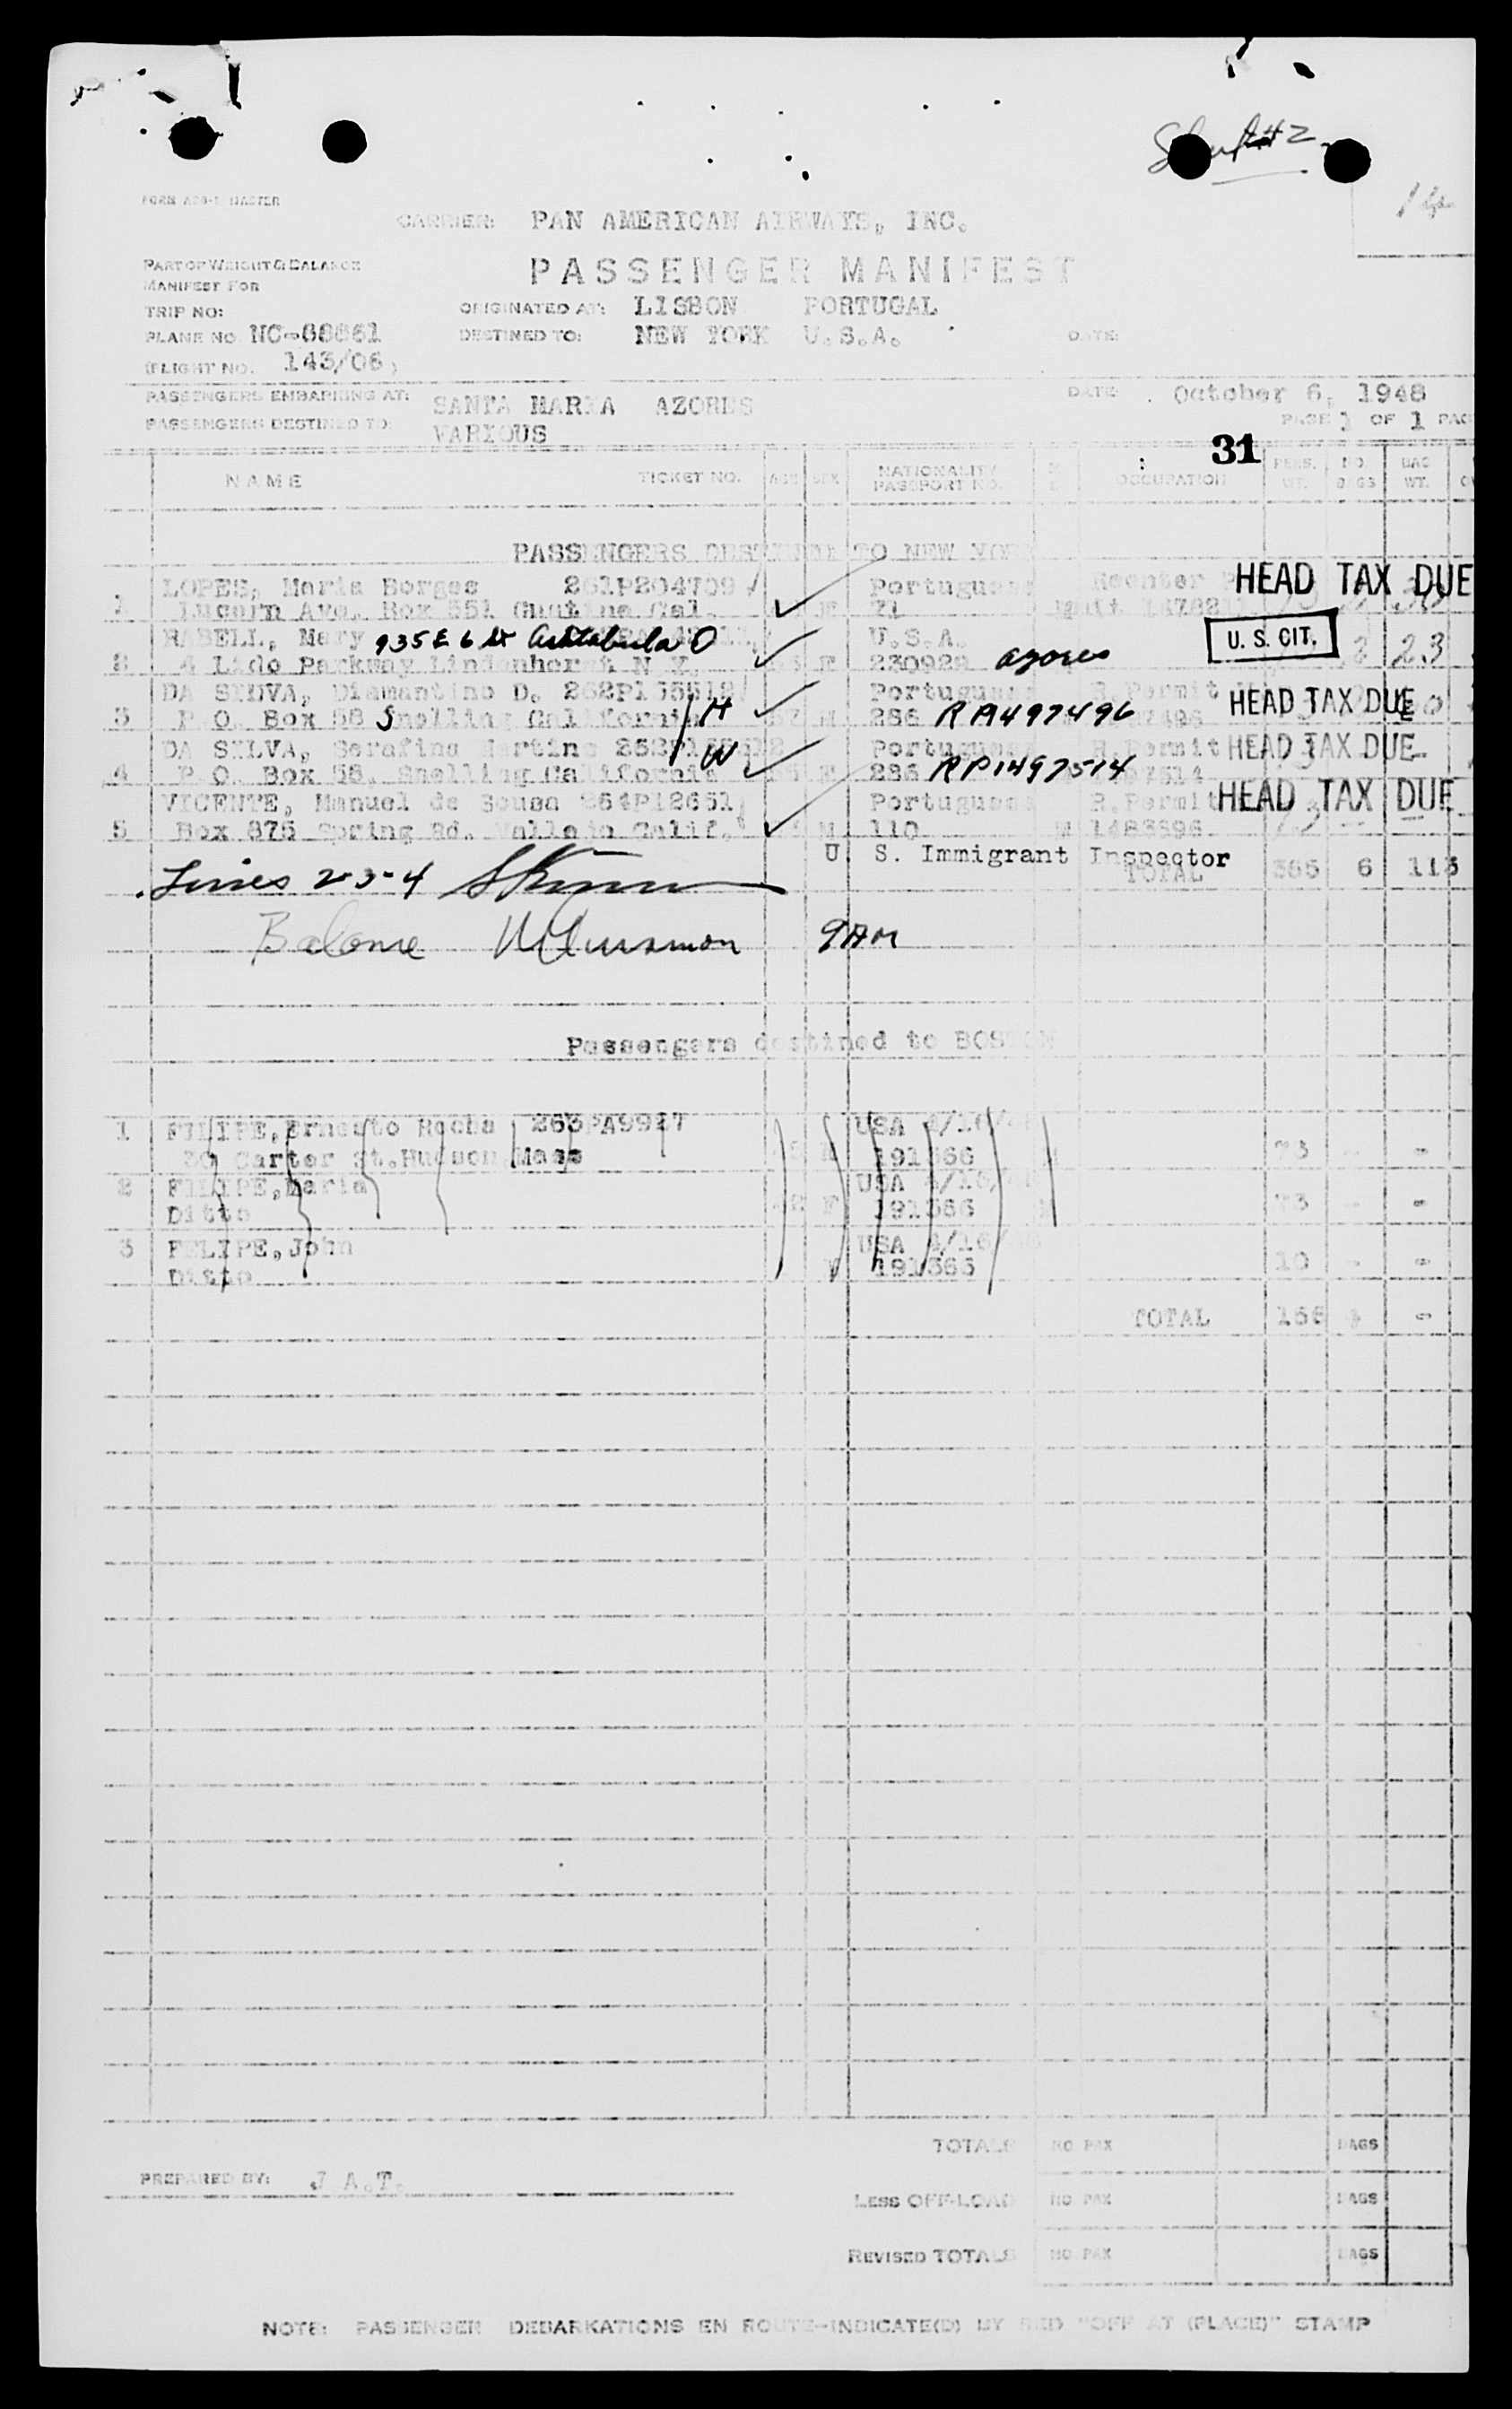 Sheet #2
FORM MASTER
CARRIER: PAN AMERICAN AIRWAYS, INC.
PART OF WEIGHT & BALANCE
MANIFEST FOR
PASSENGER MANIFEST
TRIP NO:
ORIGINATED AT: LISBON PORTUGAL
PLANE NO. NC-88861
DESTINED TO: NEW YORK U.S.A. DATE:
(FLIGHT NO. 143/06)
PASSENGERS EMBARKING AT: SANTA MARIA AZORES DATE: October 6, 1948
PASSENGERS DESTINED TO: VARIOUS PAGE 1 OF 1
31
NAME TICKET NO. AGE SEX NATIONALITY PASSPORT NO. OCCUPATION PERS. WT. NO. BAGS BAG WT.
PASSENGERS DESTINED TO NEW YORK
LOPES, Maria Borges 261P204709 Portuguese Reenter HEAD TAX DUE
1 Ave. Box 551 Cal. F 71
RABELL, Mary 935 E 6 St Ashtabula O U.S.A. U. S. CIT. 2 23
2 4 Lido Parkway Lindenhorst N Y. F 230929 azores
DA SILVA, Diamantino D. Portuguese R.Permit HEAD TAX DUE
3 P O. Box 58 Snelling California H M 286 RA497496
DA SILVA, Serafina Martins Portuguese R.Permit HEAD TAX DUE
4 P O. Box 58, Snelling California W F 286 RP1497514
VICENTE, Manuel de Sousa 264P12651 Portuguese R.Permit HEAD TAX DUE
5 Box 875 Spring Rd. Vallejo Calif. M 110 M 1483696
U. S. Immigrant Inspector
Lines 2-3-4 TOTAL 365 6 113
Balance 9AM
Passengers destined to BOSTON
1 FELIPE, Ernesto Rocha 263PA9927 USA
30 Carter St. Hudson Mass 191366 73 - -
2 FELIPE, Maria USA
Ditto F 191366 73 - -
3 FELIPE, John USA
Ditto 191366 10 - -
TOTAL 156 - -
TOTALS NO. PAX BAGS
PREPARED BY: J A.T.
LESS OFF-LOAD NO. PAX BAGS
REVISED TOTALS NO. PAX BAGS
NOTE: PASSENGER DEBARKATIONS EN ROUTE--INDICATE(D) BY RED "OFF AT (PLACE)" STAMP